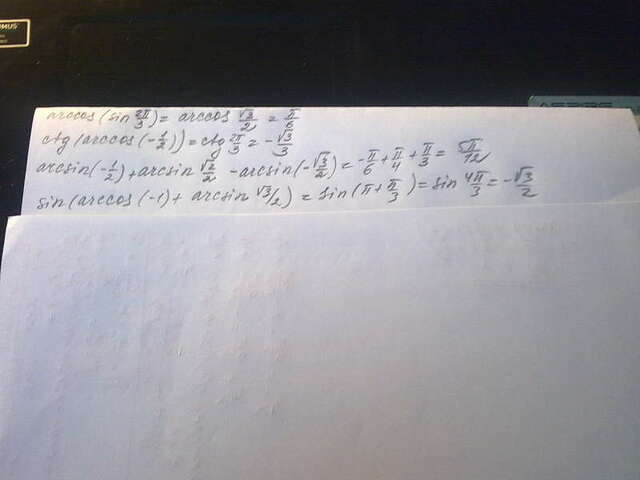 arccos(sin 2π/3) = arccos √3/2 = π/6
ctg(arccos(-1/2)) = ctg 2π/3 = -√3/3
arcsin(-1/2) + arcsin √2/2 - arcsin(-√3/2) = -π/6 + π/4 + π/3 = 5π/12
sin(arccos(-1) + arcsin √3/2) = sin(π + π/3) = sin 4π/3 = -√3/2